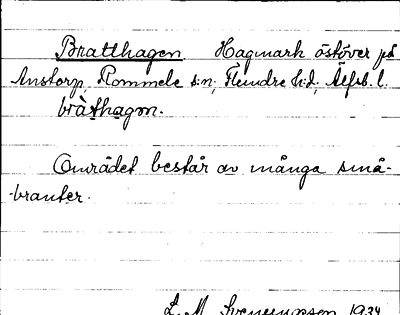 Bratthagen. Hagmark östöver på
Anstorp, Rommele s:n, Flundre h:d, Älfsb. l.
bràthagən.
Området består av många små-
-branter.
L. M. Svenungsson 1934